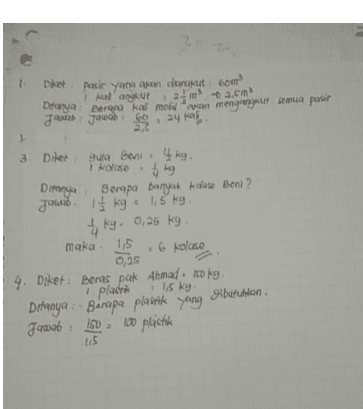 1. Diket : pasir yang akan diangkut : 60 m³
1 kali angkut : 2 1/2 m³ → 2,5 m³
Ditanya : Berapa kali mobil akan mengangkut semua pasir
Jawab : Jawab : 60/2,5 = 24 kali
3. Diket : gula Beni = 1/2 kg.
1 kolase : 1/4 kg
Ditanya : Berapa banyak kolase Beni?
Jawab. 1 1/2 kg = 1,5 kg.
1/4 kg = 0,25 kg.
maka . 1,5/0,25 = 6 kolase
4. Diket : Beras pak Ahmad = 150 kg.
1 plastik : 1,5 kg.
Ditanya : Berapa plastik yang dibutuhkan.
Jawab : 150/1,5 = 100 plastik